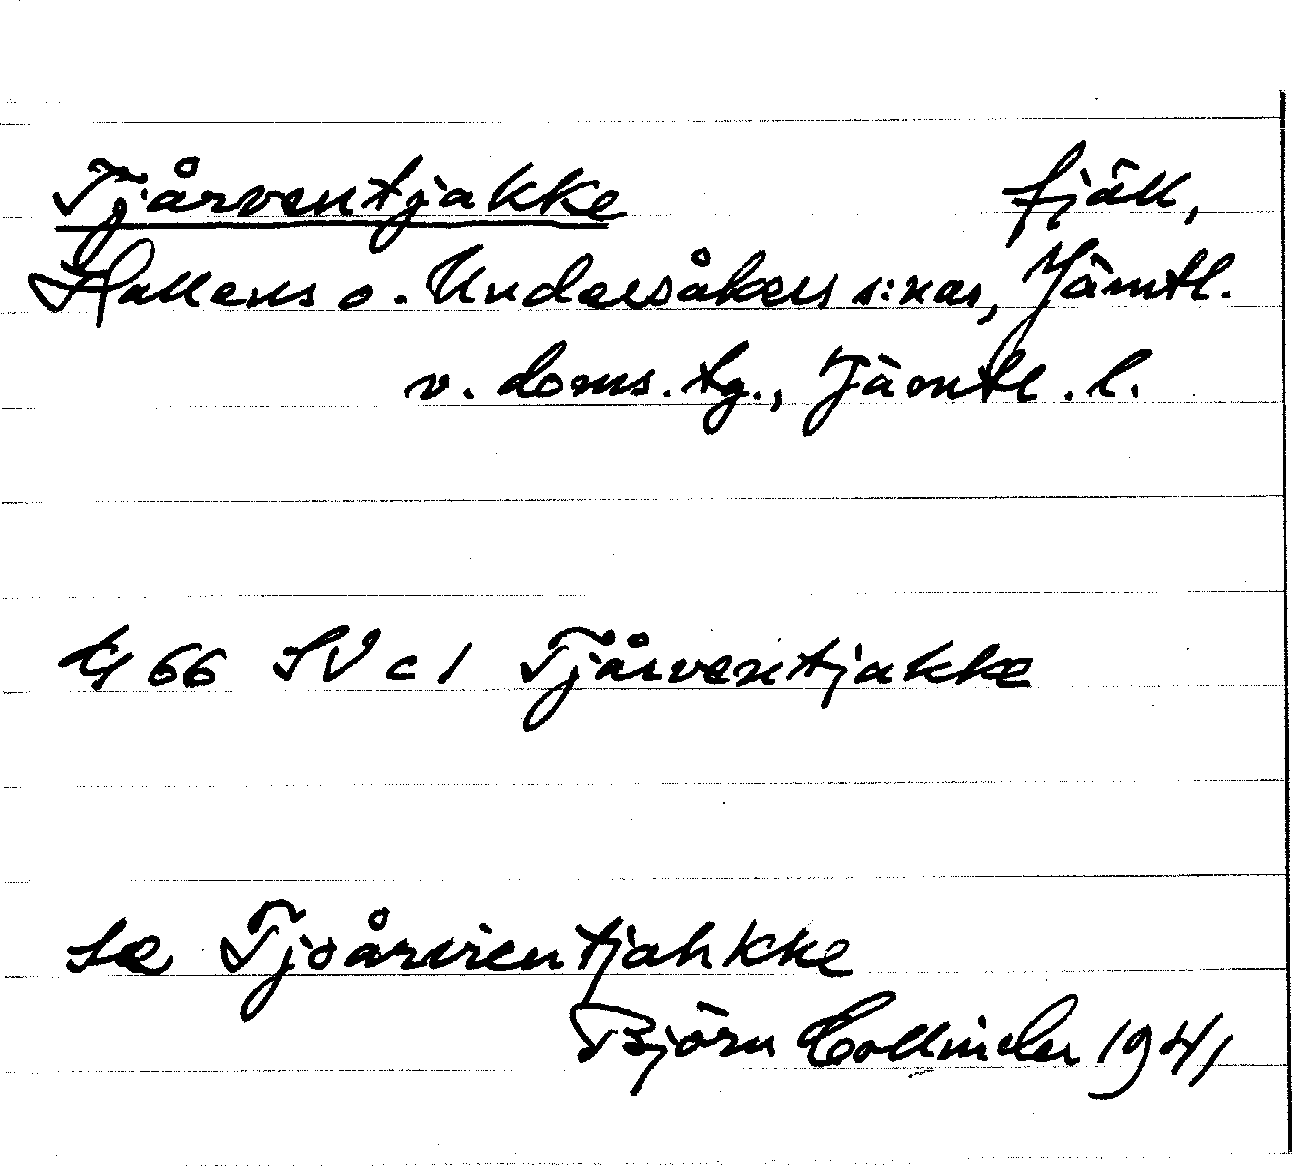 Tjårventjakke fjäll,
Hallens o. Undersåkers s:nar, Jämtl.
v. doms. tg., Jämtl. l.
66 SV c 1 Tjårventjakke
se Tjoårvientjahkke
Björn Collinder 1941